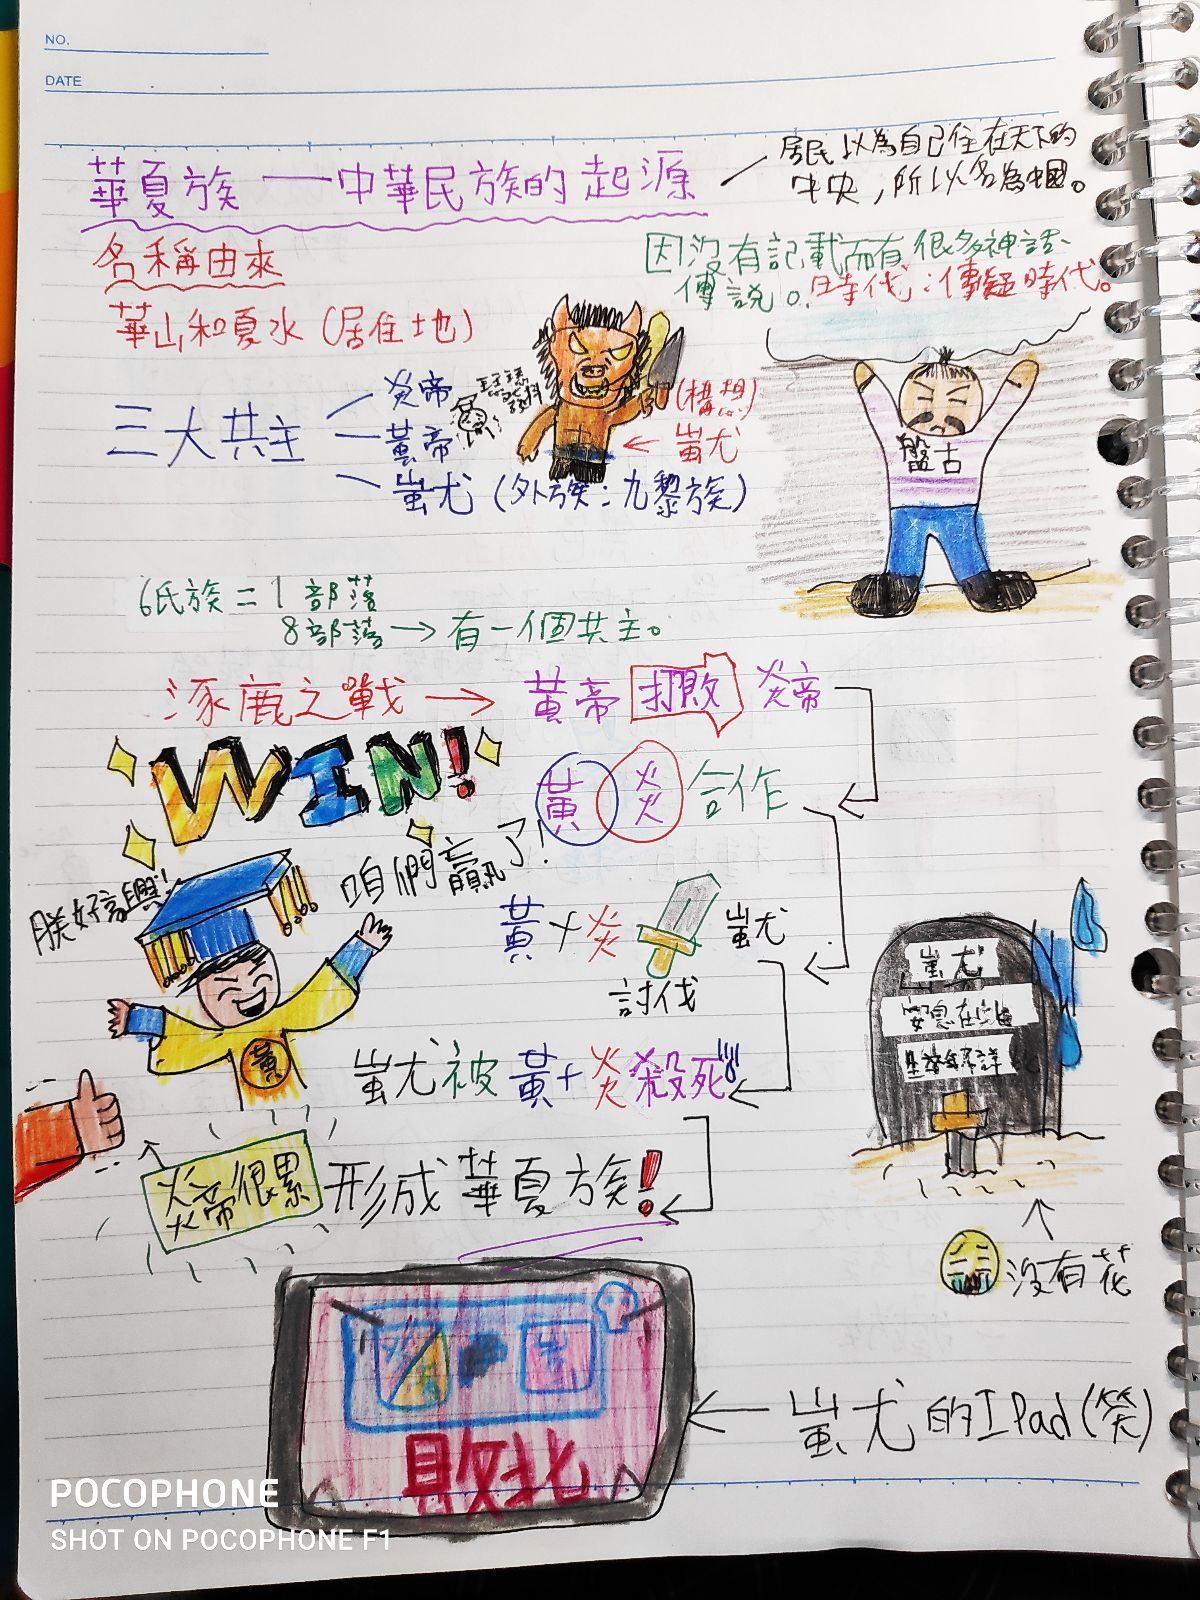 NO.
DATE
華夏族 — 中華民族的起源
居民以為自己住在天下的
中央，所以名為中國。
名稱由來
華山和夏水（居住地）
因沒有記載而有很多神話、
傳說。時代：傳疑時代。
三大共主
炎帝
黃帝
蚩尤（外族：九黎族）
（構想）
蚩尤
盤古
6氏族 = 1 部落
8部落 → 有一個共主。
涿鹿之戰 → 黃帝 打敗 炎帝
WIN!
黃 炎 合作
朕好高興!
咱們贏了!
黃 + 炎 蚩尤
討伐
黃
蚩尤
安息在此
蚩尤被黃+炎殺死!!!
炎帝很累
形成華夏族!
沒有花
敗北
蚩尤的IPad
POCOPHONE
SHOT ON POCOPHONE F1